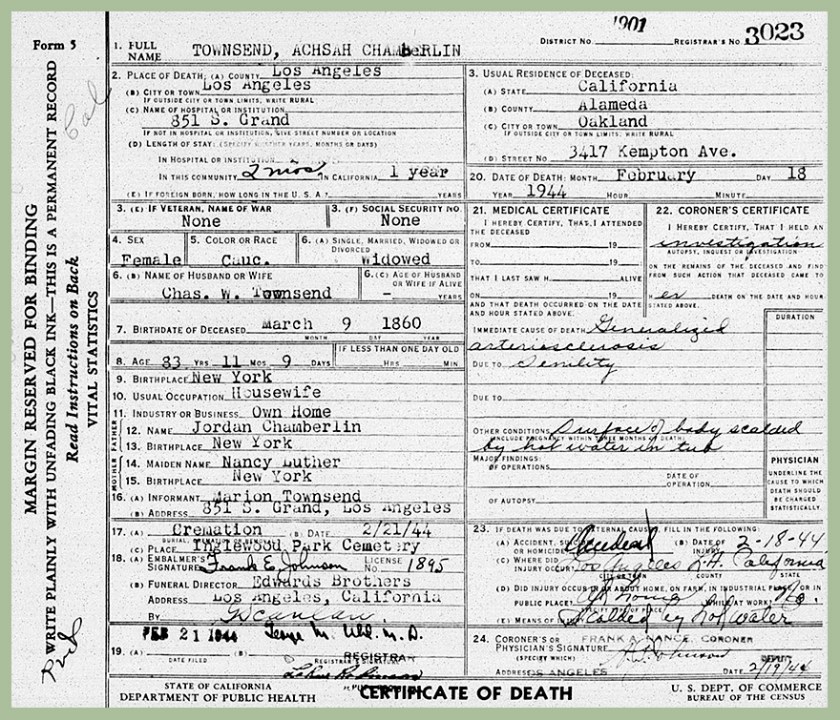 1901
Form 5
DISTRICT NO. REGISTRAR'S NO. 3023
1. FULL NAME TOWNSEND, ACHSAH CHAMBERLIN
2. PLACE OF DEATH: (A) COUNTY Los Angeles
(B) CITY OR TOWN Los Angeles
IF OUTSIDE CITY OR TOWN LIMITS, WRITE RURAL
(C) NAME OF HOSPITAL OR INSTITUTION:
851 S. Grand
IF NOT IN HOSPITAL OR INSTITUTION, GIVE STREET NUMBER OR LOCATION
(D) LENGTH OF STAY: (SPECIFY WHETHER YEARS, MONTHS OR DAYS)
IN HOSPITAL OR INSTITUTION
IN THIS COMMUNITY 2 mos IN CALIFORNIA 1 year
(E) IF FOREIGN BORN, HOW LONG IN THE U. S. A.? YEARS
3. USUAL RESIDENCE OF DECEASED:
(A) STATE California
(B) COUNTY Alameda
(C) CITY OR TOWN Oakland
IF OUTSIDE CITY OR TOWN LIMITS, WRITE RURAL
(D) STREET NO. 3417 Kempton Ave.
20. DATE OF DEATH: MONTH February DAY 18
YEAR 1944 HOUR MINUTE
3. (E) IF VETERAN, NAME OF WAR
None
3. (F) SOCIAL SECURITY NO.
None
4. SEX
Female
5. COLOR OR RACE
Cauc.
6. (A) SINGLE, MARRIED, WIDOWED OR DIVORCED
Widowed
6. (B) NAME OF HUSBAND OR WIFE
Chas. W. Townsend
6. (C) AGE OF HUSBAND OR WIFE IF ALIVE
- YEARS
7. BIRTHDATE OF DECEASED March 9 1860
MONTH DAY YEAR
8. AGE 83 YRS 11 MOS 9 DAYS
IF LESS THAN ONE DAY OLD
HRS MIN
9. BIRTHPLACE New York
10. USUAL OCCUPATION Housewife
11. INDUSTRY OR BUSINESS Own Home
FATHER
12. NAME Jordan Chamberlin
13. BIRTHPLACE New York
MOTHER
14. MAIDEN NAME Nancy Luther
15. BIRTHPLACE New York
16. (A) INFORMANT Marion Townsend
(B) ADDRESS 851 S. Grand, Los Angeles
17. (A) Cremation (B) DATE 2/21/44
(C) PLACE Inglewood Park Cemetery
18. (A) EMBALMER'S SIGNATURE Frank E. Johnson LICENSE NO. 1895
(B) FUNERAL DIRECTOR Edwards Brothers
ADDRESS Los Angeles, California
BY
FEB 21 1944 M. Uhl, M. D.
19. (A) DATE FILED (B) REGISTRAR'S SIGNATURE
REGISTRAR
21. MEDICAL CERTIFICATE
I HEREBY CERTIFY, THAT I ATTENDED THE DECEASED
FROM 19
TO 19
THAT I LAST SAW H ALIVE
ON 19
AND THAT DEATH OCCURRED ON THE DATE AND HOUR STATED ABOVE.
22. CORONER'S CERTIFICATE
I HEREBY CERTIFY, THAT I HELD AN
investigation
AUTOPSY, INQUEST OR INVESTIGATION
ON THE REMAINS OF THE DECEASED AND FIND
FROM SUCH ACTION THAT DECEASED CAME TO
Her DEATH ON THE DATE AND HOUR
STATED ABOVE.
DURATION
IMMEDIATE CAUSE OF DEATH Generalized
arteriosclerosis
DUE TO Senility
DUE TO
OTHER CONDITIONS Surface of body scalded
INCLUDE PREGNANCY WITHIN THREE MONTHS OF DEATH
by hot water in tub
MAJOR FINDINGS:
OF OPERATIONS
DATE OF OPERATION
OF AUTOPSY
PHYSICIAN
UNDERLINE THE CAUSE TO WHICH DEATH SHOULD BE CHARGED STATISTICALLY.
23. IF DEATH WAS DUE TO EXTERNAL CAUSE, FILL IN THE FOLLOWING:
(A) ACCIDENT, SUICIDE OR HOMICIDE Accident (B) DATE OF INJURY 2-18-44
(C) WHERE DID INJURY OCCUR? Los Angeles L.A. California
COUNTY STATE
(D) DID INJURY OCCUR IN OR ABOUT HOME, ON FARM, IN INDUSTRIAL PLACE OR IN
PUBLIC PLACE? At home WHILE AT WORK? No.
(E) MEANS OF INJURY Scalded by hot water
24. CORONER'S OR PHYSICIAN'S SIGNATURE FRANK A. NANCE, CORONER
(SPECIFY WHICH)
DEPUTY
ADDRESS LOS ANGELES DATE 2/19/44
STATE OF CALIFORNIA
DEPARTMENT OF PUBLIC HEALTH
CERTIFICATE OF DEATH
U. S. DEPT. OF COMMERCE
BUREAU OF THE CENSUS
MARGIN RESERVED FOR BINDING
WRITE PLAINLY WITH UNFADING BLACK INK—THIS IS A PERMANENT RECORD
Read Instructions on Back
VITAL STATISTICS